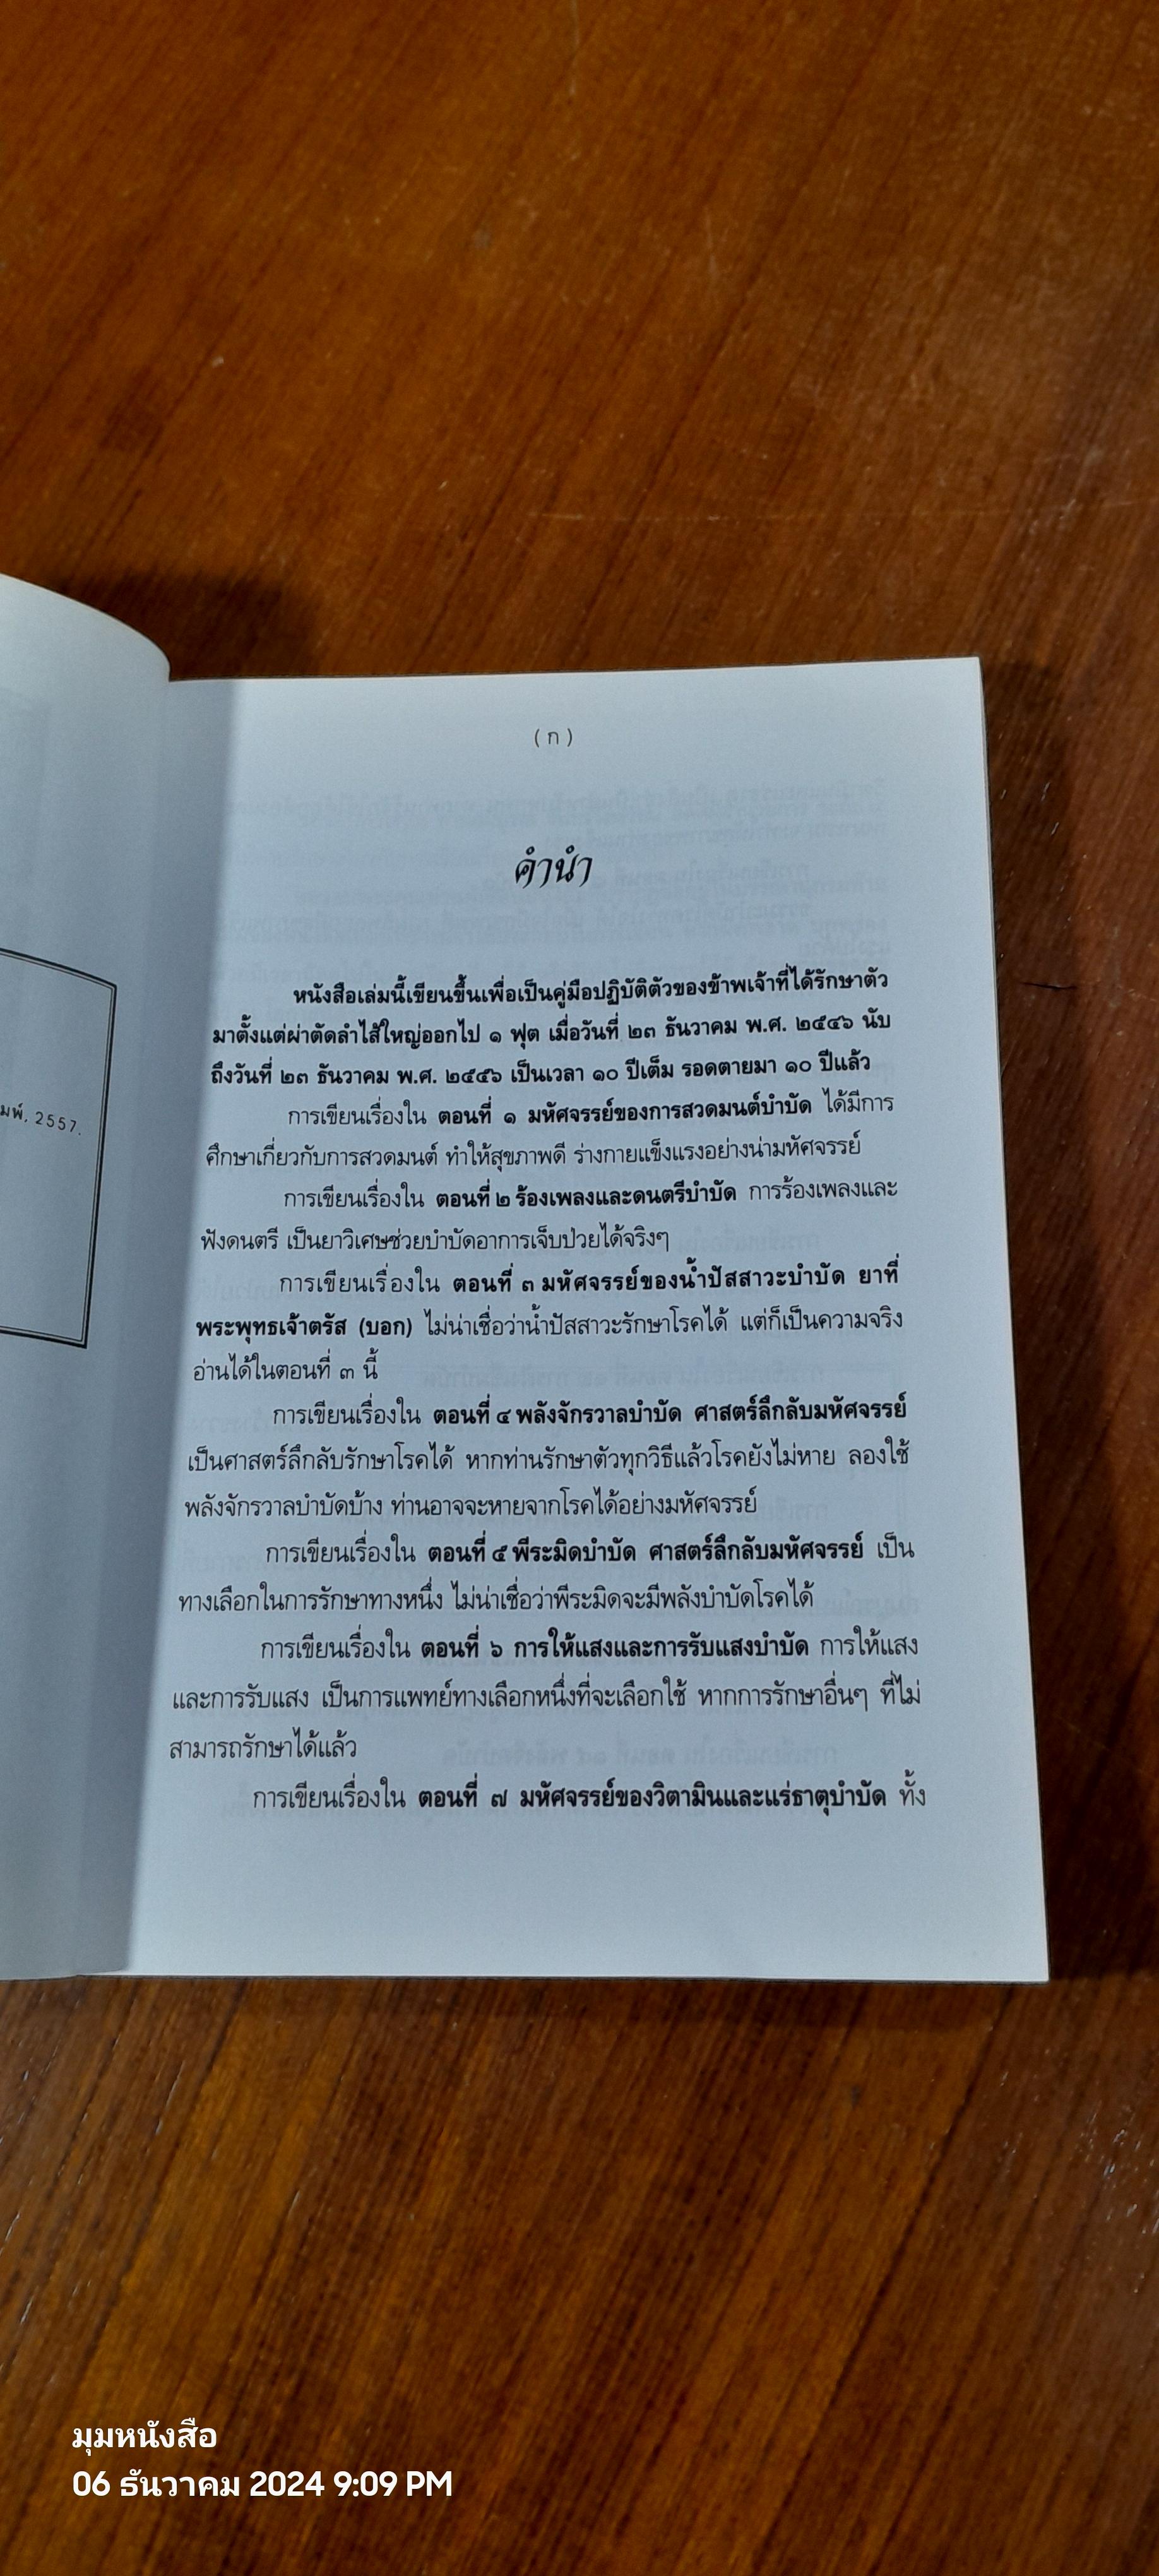 มพ์, 2557.
(ก)
คำนำ
หนังสือเล่มนี้เขียนขึ้นเพื่อเป็นคู่มือปฏิบัติตัวของข้าพเจ้าที่ได้รักษาตัว
มาตั้งแต่ผ่าตัดลำไส้ใหญ่ออกไป ๑ ฟุต เมื่อวันที่ ๒๓ ธันวาคม พ.ศ. ๒๕๔๖ นับ
ถึงวันที่ ๒๓ ธันวาคม พ.ศ. ๒๕๕๖ เป็นเวลา ๑๐ ปีเต็ม รอดตายมา ๑๐ ปีแล้ว
การเขียนเรื่องใน ตอนที่ ๑ มหัศจรรย์ของการสวดมนต์บำบัด ได้มีการ
ศึกษาเกี่ยวกับการสวดมนต์ ทำให้สุขภาพดี ร่างกายแข็งแรงอย่างน่ามหัศจรรย์
การเขียนเรื่องใน ตอนที่ ๒ ร้องเพลงและดนตรีบำบัด การร้องเพลงและ
ฟังดนตรี เป็นยาวิเศษช่วยบำบัดอาการเจ็บป่วยได้จริงๆ
การเขียนเรื่องใน ตอนที่ ๓ มหัศจรรย์ของน้ำปัสสาวะบำบัด ยาที่
พระพุทธเจ้าตรัส (บอก) ไม่น่าเชื่อว่าน้ำปัสสาวะรักษาโรคได้ แต่ก็เป็นความจริง
อ่านได้ในตอนที่ ๓ นี้
การเขียนเรื่องใน ตอนที่ ๔ พลังจักรวาลบำบัด ศาสตร์ลึกลับมหัศจรรย์
เป็นศาสตร์ลึกลับรักษาโรคได้ หากท่านรักษาตัวทุกวิธีแล้วโรคยังไม่หาย ลองใช้
พลังจักรวาลบำบัดบ้าง ท่านอาจจะหายจากโรคได้อย่างมหัศจรรย์
การเขียนเรื่องใน ตอนที่ ๕ พีระมิดบำบัด ศาสตร์ลึกลับมหัศจรรย์ เป็น
ทางเลือกในการรักษาทางหนึ่ง ไม่น่าเชื่อว่าพีระมิดจะมีพลังบำบัดโรคได้
การเขียนเรื่องใน ตอนที่ ๖ การให้แสงและการรับแสงบำบัด การให้แสง
และการรับแสง เป็นการแพทย์ทางเลือกหนึ่งที่จะเลือกใช้ หากการรักษาอื่นๆ ที่ไม่
สามารถรักษาได้แล้ว
การเขียนเรื่องใน ตอนที่ ๗ มหัศจรรย์ของวิตามินและแร่ธาตุบำบัด ทั้ง
มุมหนังสือ
06 ธันวาคม 2024 9:09 PM